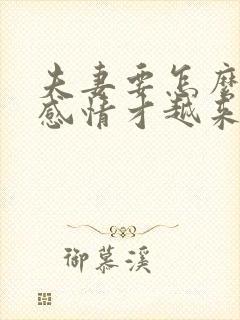 夫妻要怎麼
感情才越来
御慕溪